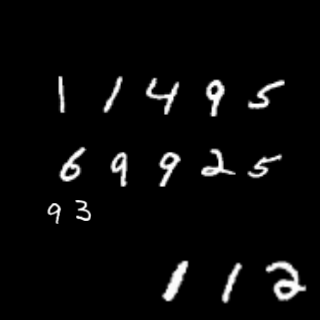 1 1 4 9 5
6 9 9 2 5
9 3
1 1 2